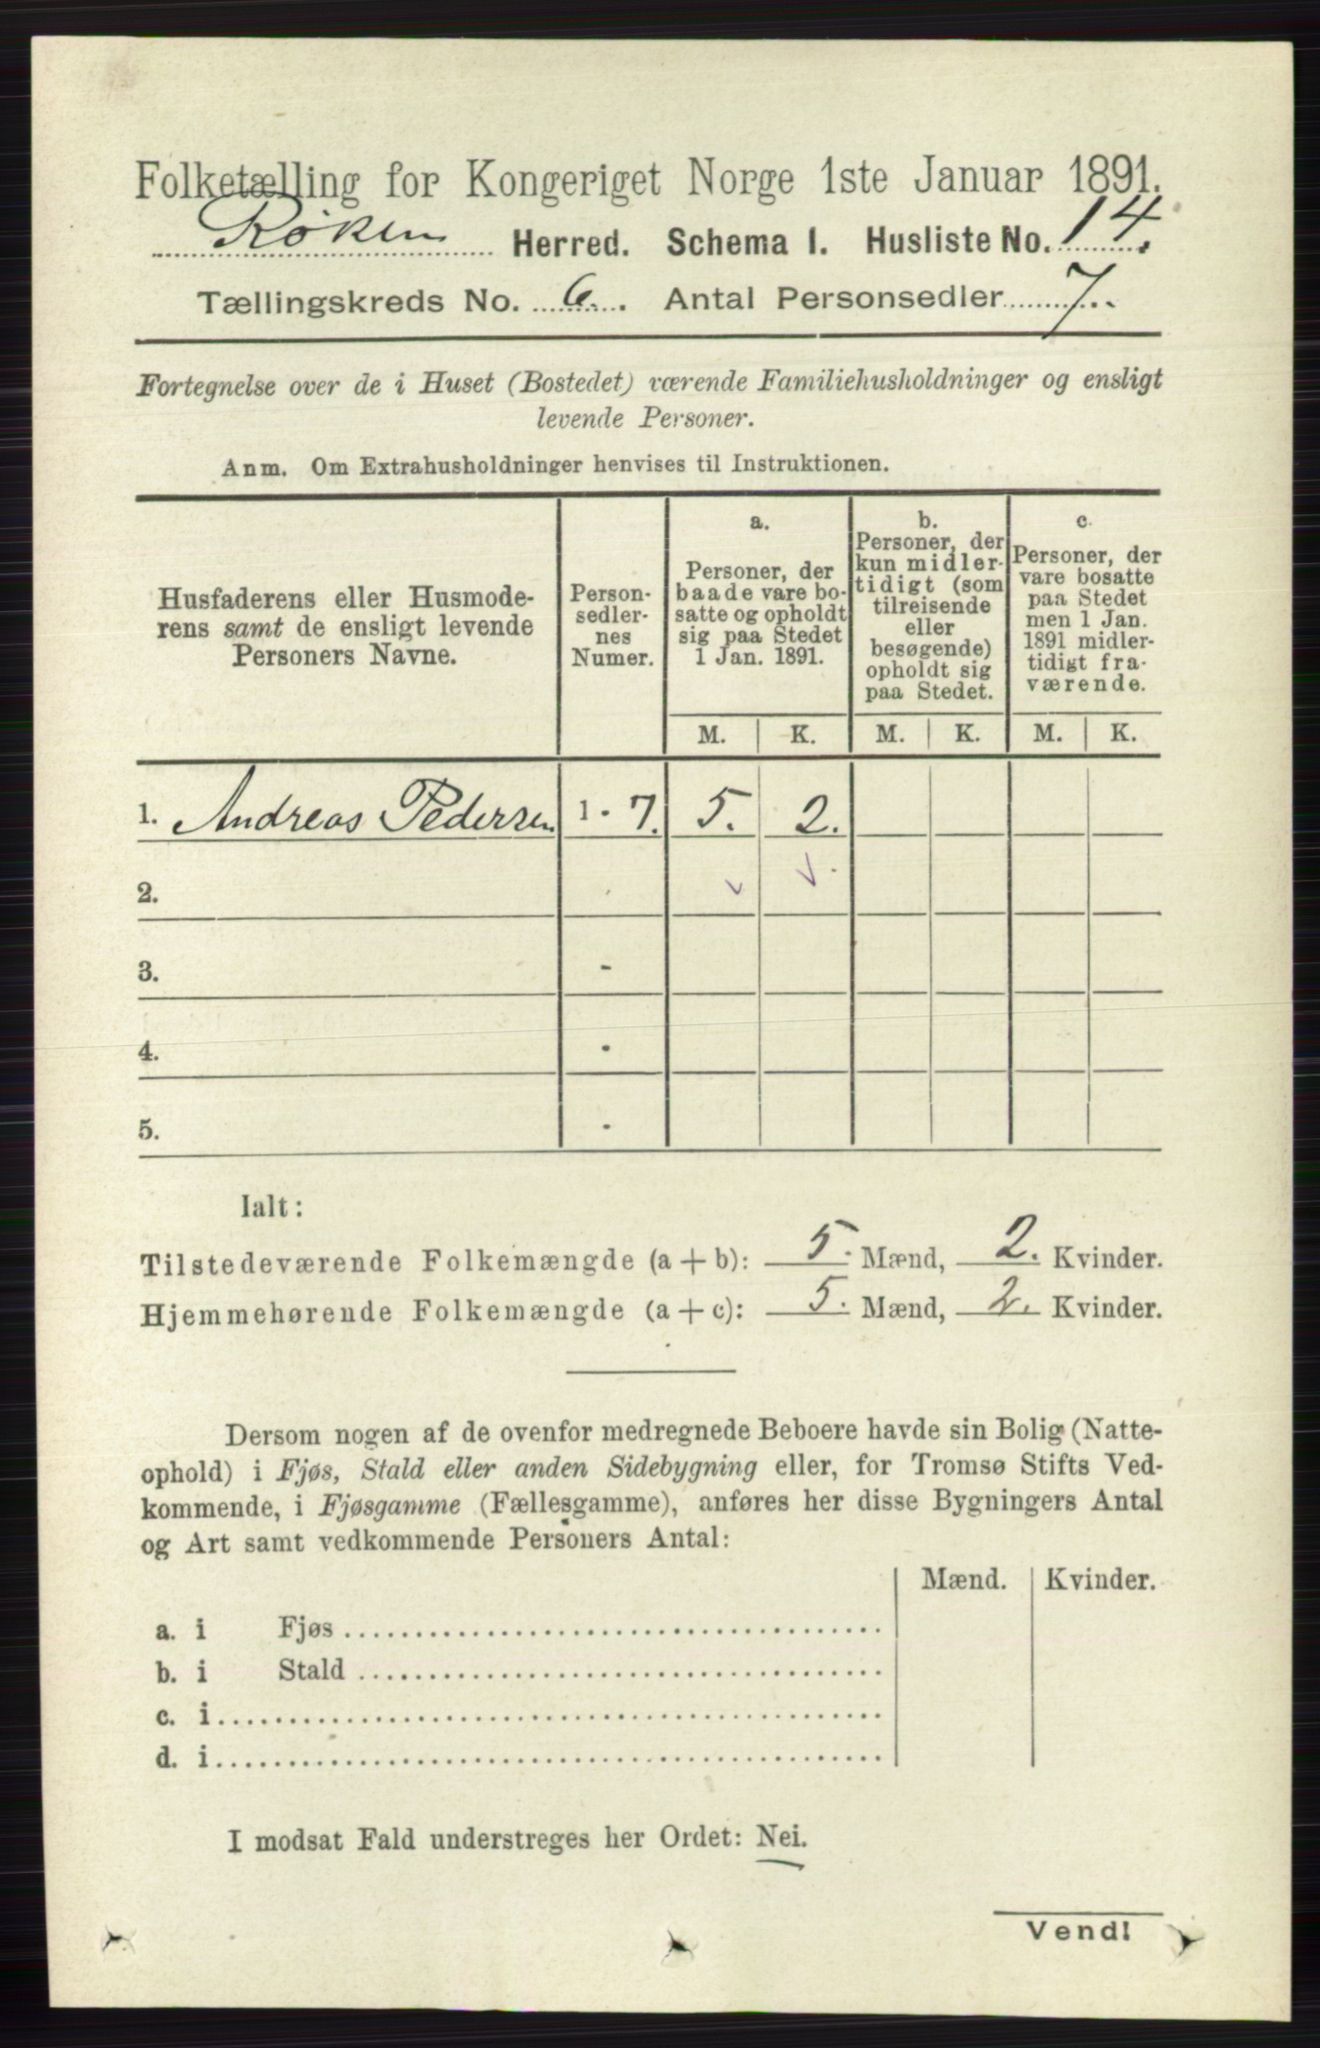 Folketælling for Kongeriget Norge 1ste Januar 1891.
Røken Herred. Schema I. Husliste No. 14.
Tællingskreds No. 6. Antal Personsedler 7.
Fortegnelse over de i Huset (Bostedet) værende Familiehusholdninger og ensligt
levende Personer.
Anm. Om Extrahusholdninger henvises til Instruktionen.
Husfaderens eller Husmode-
rens samt de ensligt levende
Personers Navne.
Person-
sedler-
nes
Numer.
a.
Personer, der
baade vare bo-
satte og opholdt
sig paa Stedet
1 Jan. 1891.
b.
Personer, der
kun midler-
tidigt (som
tilreisende
eller
besøgende)
opholdt sig
paa Stedet.
c.
Personer, der
vare bosatte
paa Stedet
men 1 Jan.
1891 midler-
tidigt fra-
værende.
M. K. M. K. M. K.
1. Andreas Pedersen 1 - 7. 5. 2.
2.
3. -
4. -
5. -
Ialt:
Tilstedeværende Folkemængde (a + b): 5. Mænd, 2. Kvinder.
Hjemmehørende Folkemængde (a + c): 5. Mænd, 2. Kvinder.
Dersom nogen af de ovenfor medregnede Beboere havde sin Bolig (Natte-
ophold) i Fjøs, Stald eller anden Sidebygning eller, for Tromsø Stifts Ved-
kommende, i Fjøsgamme (Fællesgamme), anføres her disse Bygningers Antal
og Art samt vedkommende Personers Antal:
Mænd. Kvinder.
a. i Fjøs
b. i Stald
c. i
d. i
I modsat Fald understreges her Ordet: Nei.
Vend!